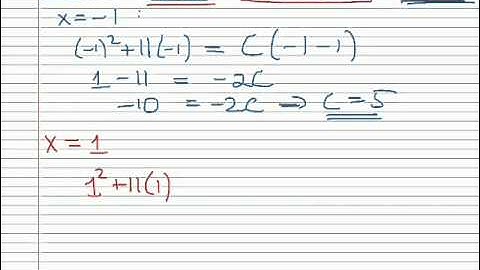 x = -1 :
(-1)² + 11(-1) = C(-1-1)
1 - 11 = -2C
-10 = -2C ⇒ C = 5
x = 1
1² + 11(1)